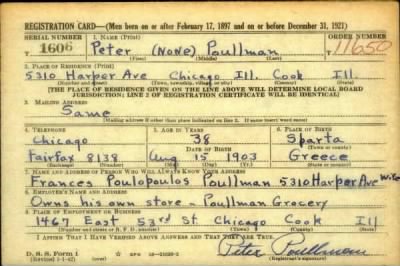 REGISTRATION CARD—(Men born on or after February 17, 1897 and on or before December 31, 1921)
SERIAL NUMBER 1. NAME (Print) ORDER NUMBER
T 1606 Peter (None) Poullman 11650
(First) (Middle) (Last)
2. PLACE OF RESIDENCE (Print)
5310 Harper Ave Chicago Ill. Cook Ill.
(Number and street) (Town, township, village, or city) (County) (State)
[THE PLACE OF RESIDENCE GIVEN ON THE LINE ABOVE WILL DETERMINE LOCAL BOARD
JURISDICTION; LINE 2 OF REGISTRATION CERTIFICATE WILL BE IDENTICAL]
3. MAILING ADDRESS
Same
(Mailing address if other than place indicated on line 2. If same insert word same)
4. TELEPHONE 5. AGE IN YEARS 6. PLACE OF BIRTH
Chicago 38 Sparta
DATE OF BIRTH (Town or county)
Fairfax 8138 Aug 15 1903 Greece
(Exchange) (Number) (Mo.) (Day) (Yr.) (State or country)
7. NAME AND ADDRESS OF PERSON WHO WILL ALWAYS KNOW YOUR ADDRESS
Frances Poulopoulos Poullman 5310 Harper Ave wife
8. EMPLOYER'S NAME AND ADDRESS
Owns his own store - Poullman Grocery
9. PLACE OF EMPLOYMENT OR BUSINESS
1467 East 53rd St. Chicago Cook Ill
(Number and street or R. F. D. number) (Town) (County) (State)
I AFFIRM THAT I HAVE VERIFIED ABOVE ANSWERS AND THAT THEY ARE TRUE.
D. S. S. Form 1 Peter Poullman
(Revised 1-1-42) (over) (Registrant's signature)